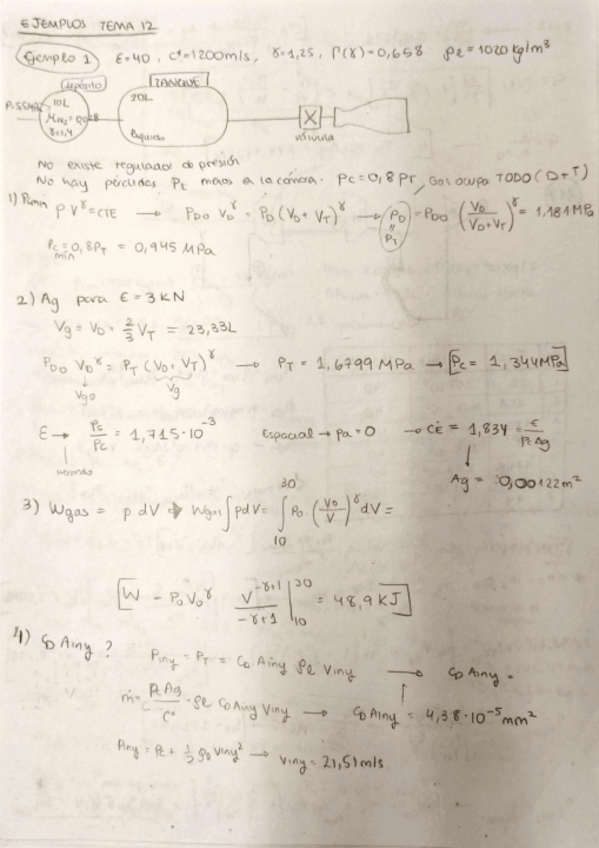 EJEMPLOS TEMA 12
Ejemplo 1 ε=40, c*=1200m/s, γ=1,25, Γ(γ)=0,658 ρe=1020 kg/m³
depósito TANQUE
P=5,5MPa 10L 20L
M N₂=0,028
γ=1,4 líquido válvula
No existe regulador de presión
No hay pérdidas Pt menos a la cámara. Pc=0,8PT, Gas ocupa TODO (D+T)
1) Pcmin PV^γ=CTE → PDO VD^γ = PD(VD+VT)^γ → PD = PDO (VD/(VD+VT))^γ = 1,181MPa
PT
Pc min = 0,8PT = 0,945 MPa
2) Ag para E=3KN
Vg = VD + 2/3 VT = 23,33L
PDO VD^γ = PT(VD+VT)^γ → PT = 1,6799 MPa → [Pc = 1,344MPa]
Vgo Vg
ε → Ps/Pc = 1,715·10⁻³ Espacial → Pa=0 → CE = 1,834 = E/PcAg
Ag = 0,00122m²
3) Wgas = p dV → Wgas ∫pdV = ∫₁₀³⁰ Po (Vo/V)^γ dV =
[W = PoVo^γ V^(-γ+1)/(-γ+1) |₁₀³⁰ = 48,9 KJ]
4) CD Ainy?
Piny = PT = CD Ainy ρe Viny → CD Ainy =
ṁ = PcAg/C* = ρe CD Ainy Viny → CD Ainy = 4,38·10⁻⁵ mm²
Piny = Pc + ½ρe Viny² → Viny = 21,51m/s